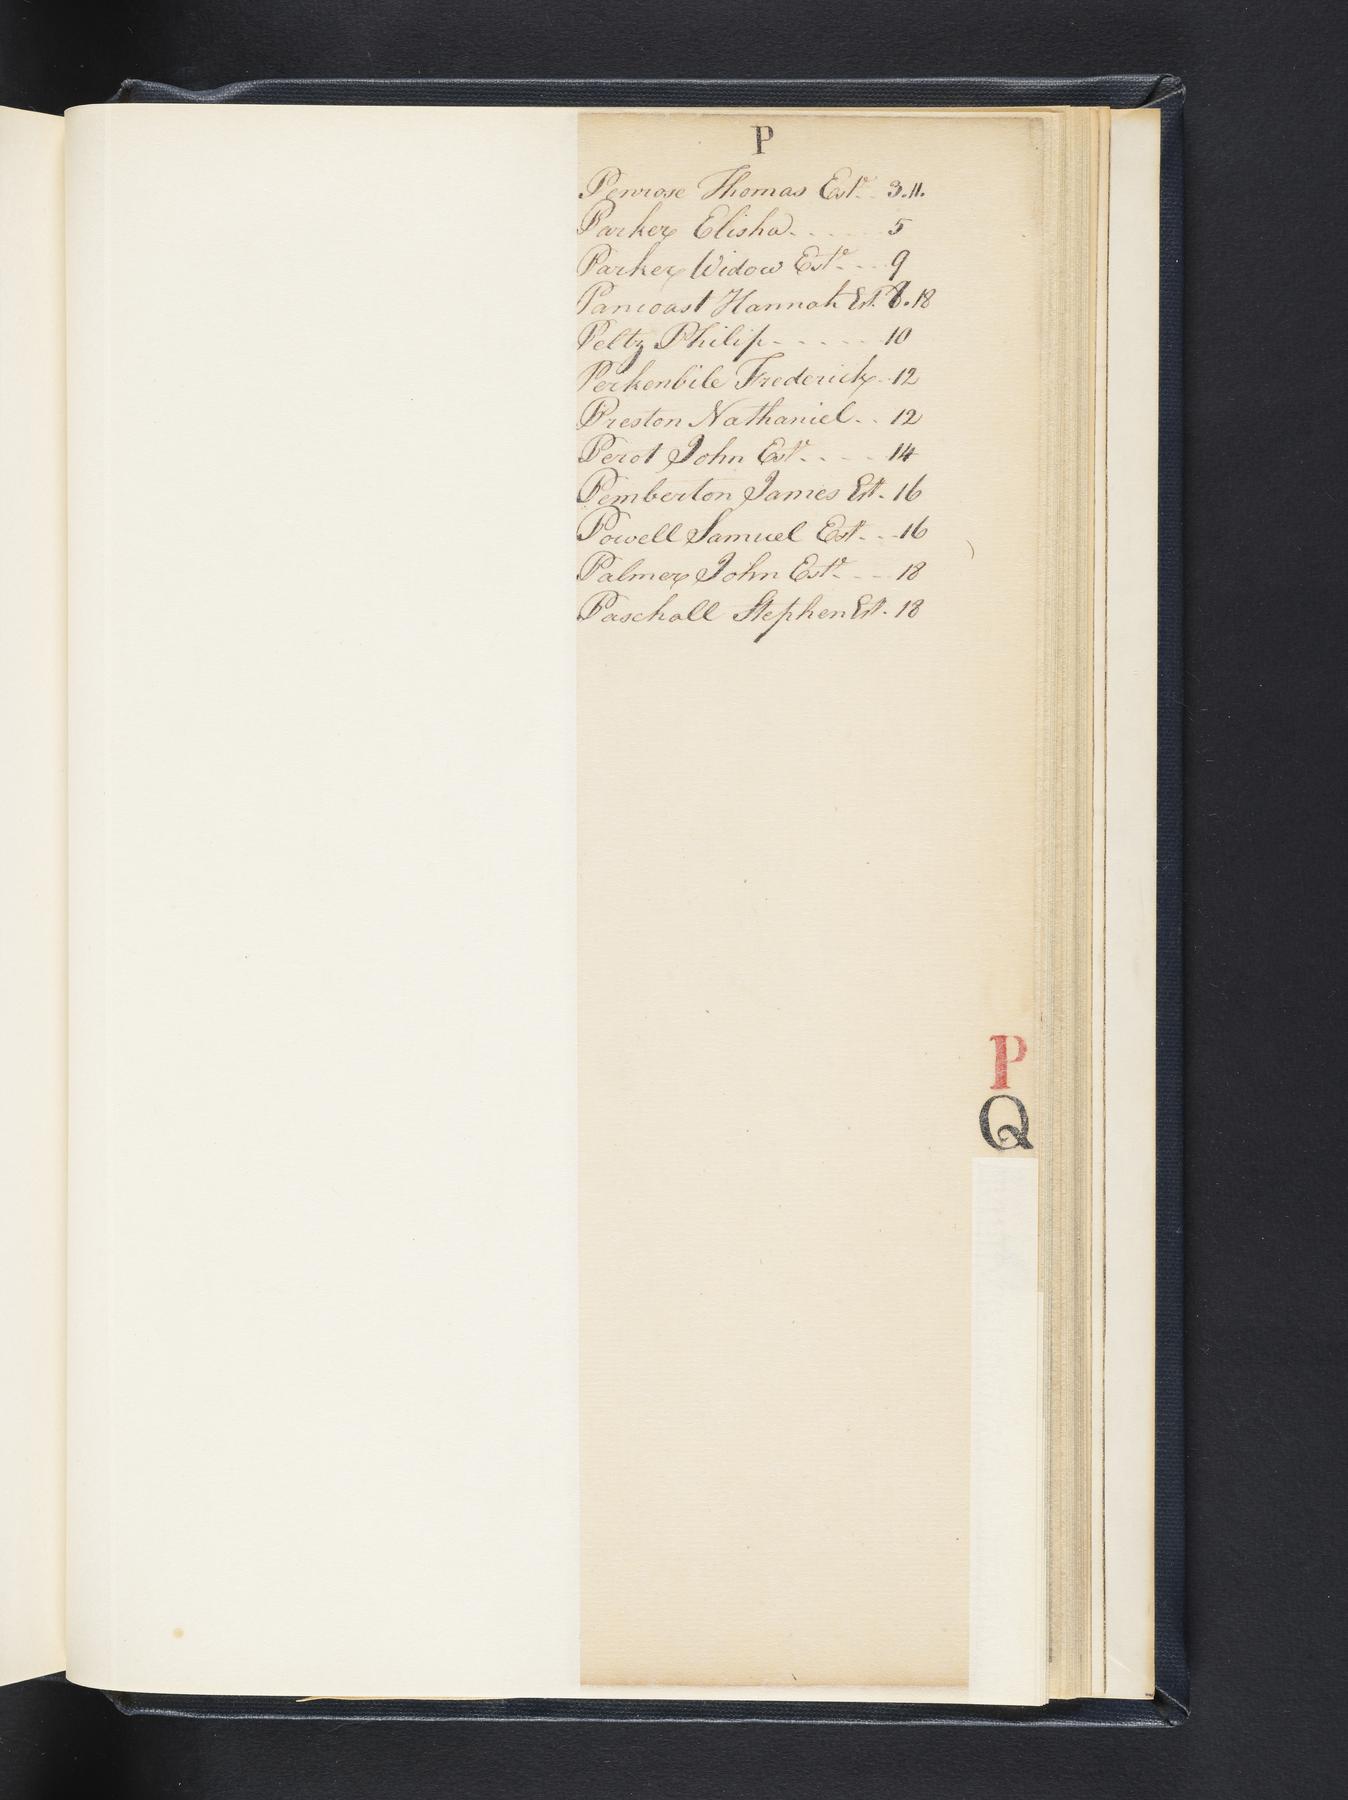 P
Penrose Thomas Estr. 3.11.
Parker Elisha. . . . . . 5
Parker Widow Estr. . . . 9
Pancoast Hannah Est. 8.18
Peltz Philip. . . . . . . 10
Perkenbile Frederick. . 12
Preston Nathaniel. . . 12
Perot John Estr. . . . . 14
Pemberton James Est. 16
Powell Samuel Est. . . 16
Palmer John Estr. . . . 18
Paschall Stephen Est. 18
P
Q